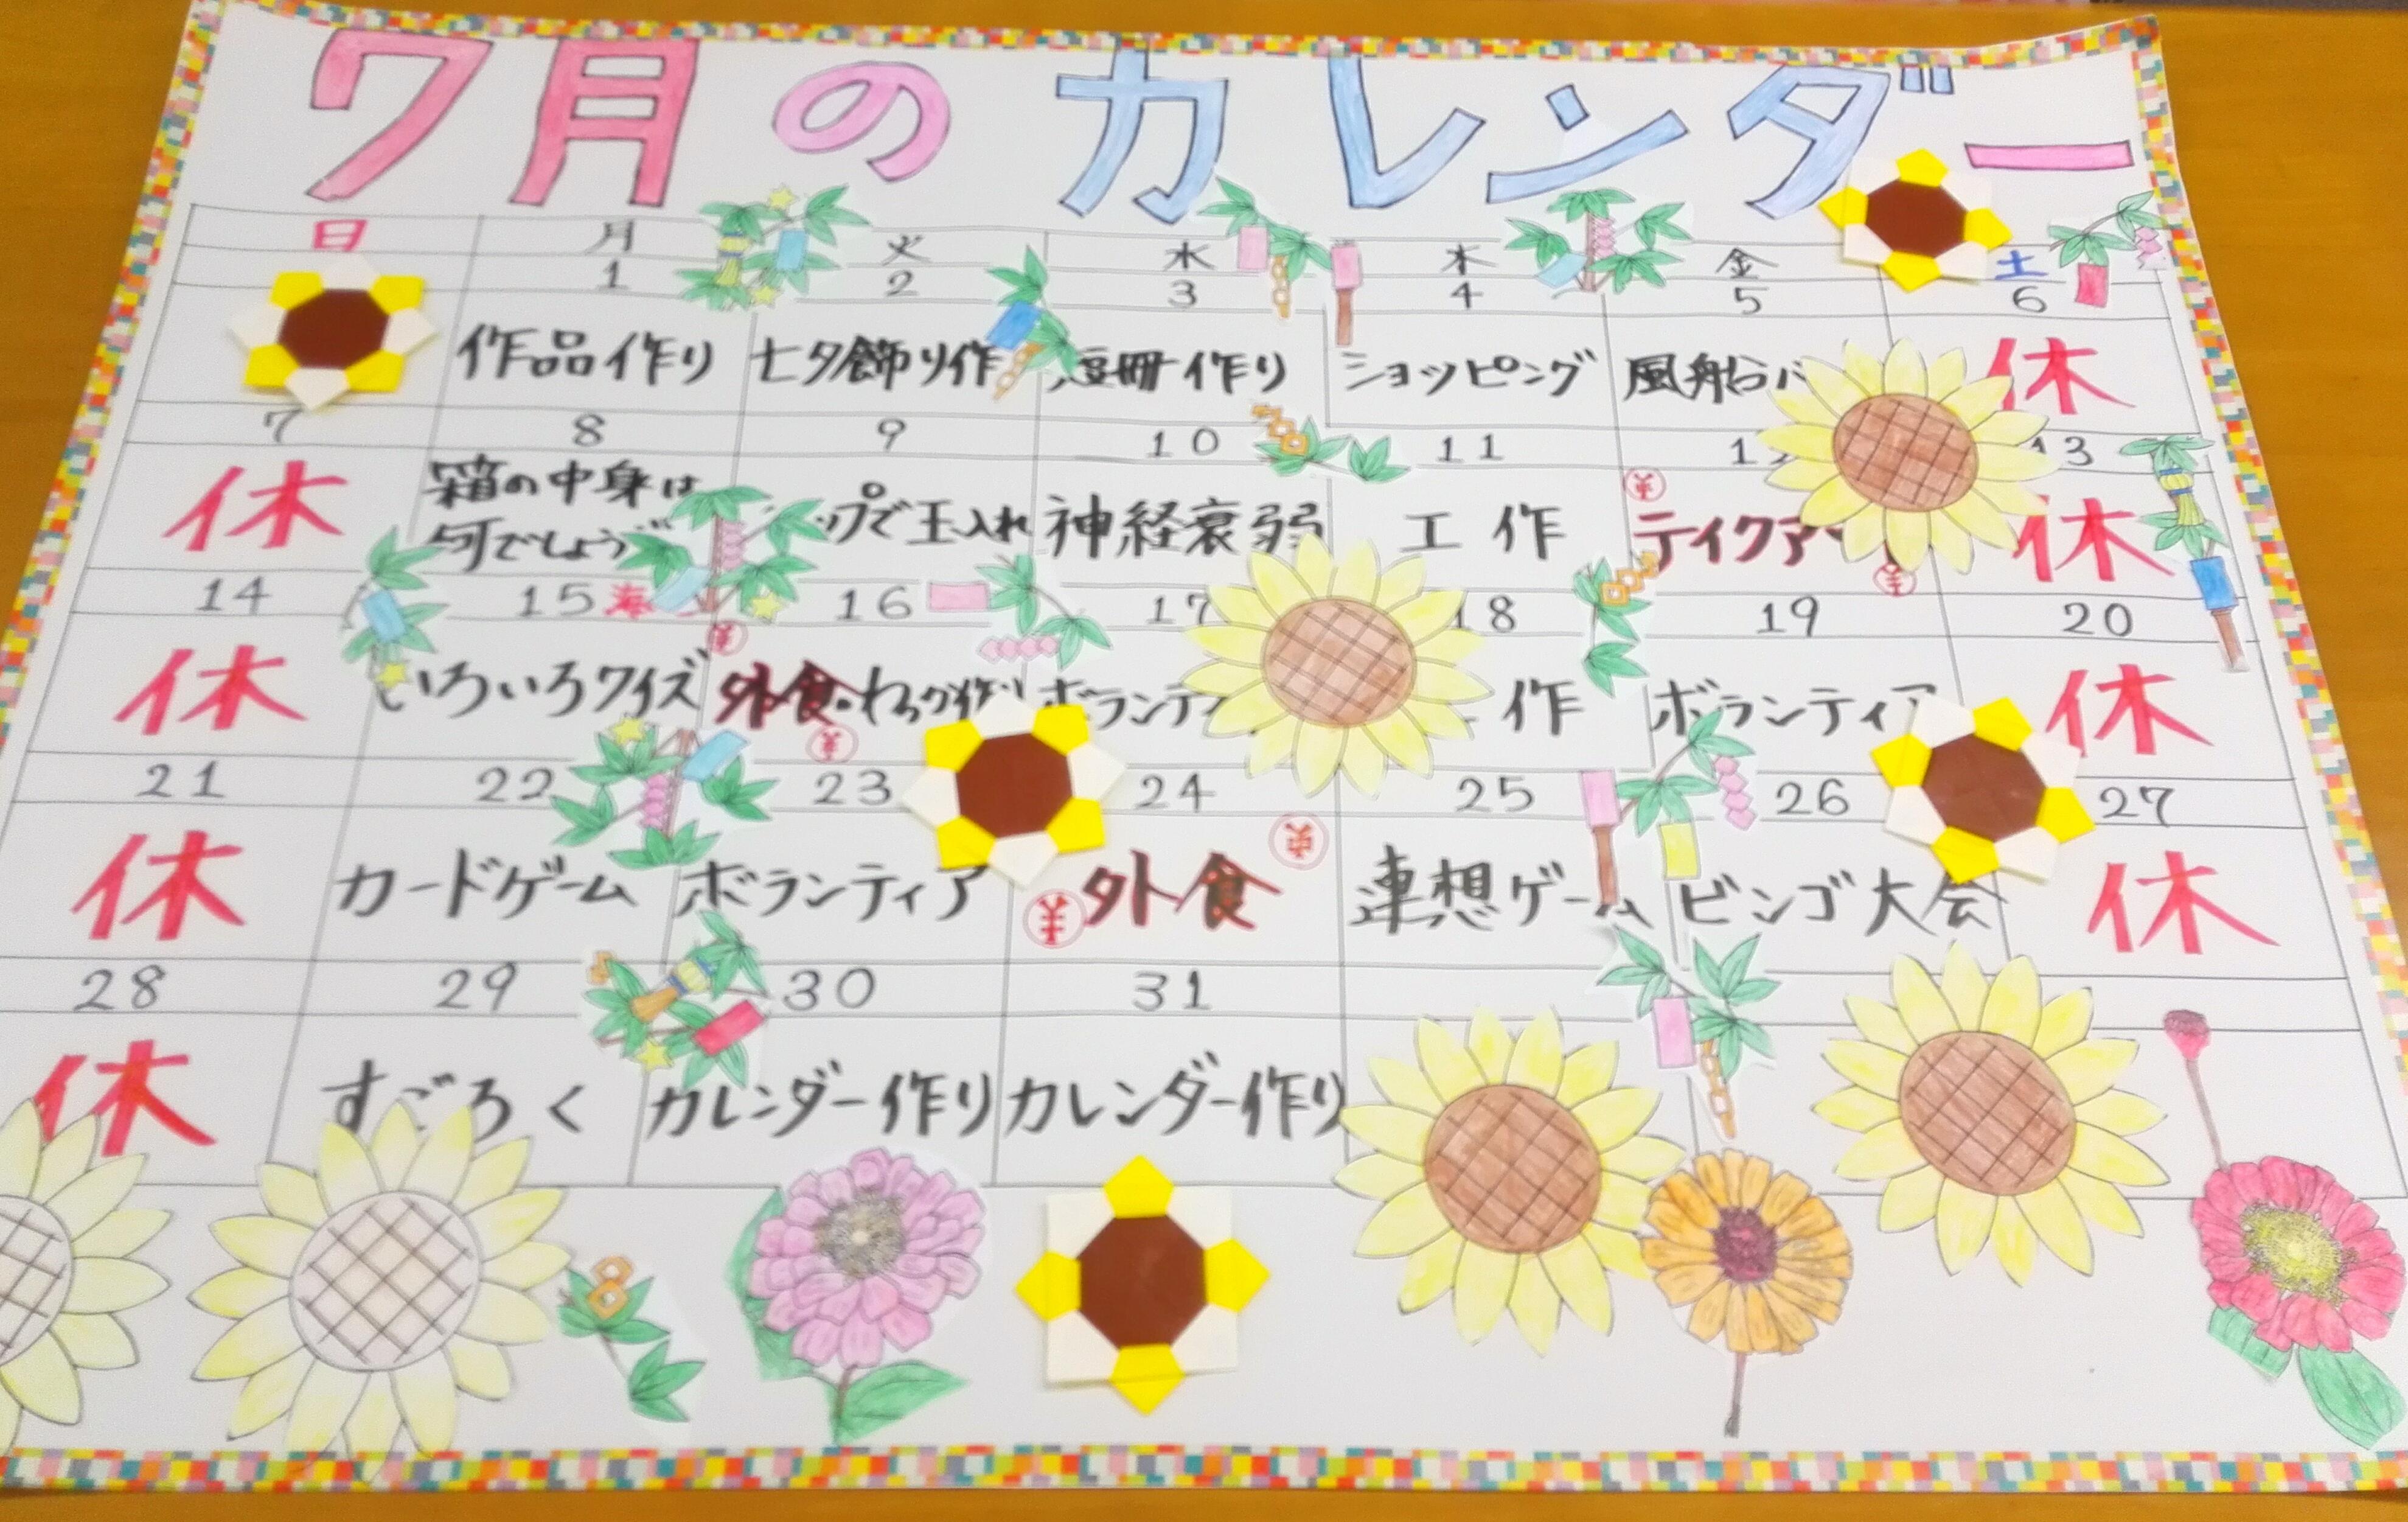 7月のカレンダー
日 月 火 水 木 金 土
1 2 3 4 5 6
作品作り 七夕飾り作 短冊作り ショッピング 風船バ 休
7 8 9 10 11 13
休 箱の中身は何でしょう ップで玉入れ 神経衰弱 工作 テイクア 休
14 15 海 16 17 18 19 20
休 いろいろクイズ 外食・わっか作り ボランティ 作 ボランティア 休
21 22 23 24 25 26 27
休 カードゲーム ボランティア 外食 連想ゲーム ビンゴ大会 休
28 29 30 31
休 すごろく カレンダー作り カレンダー作り